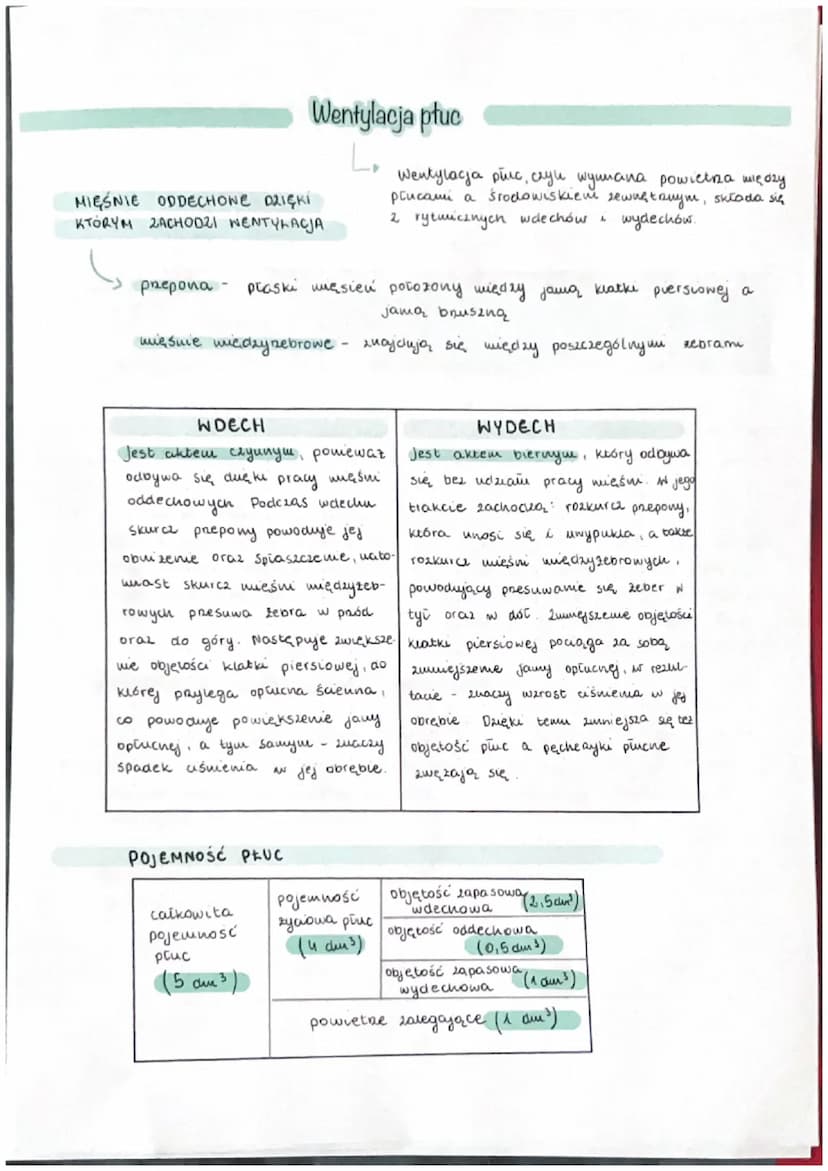 Wentylacja płuc
Wentylacja płuc, czyli wymiana powietrza między
płucami a środowiskiem zewnętrznym, składa się
z rytmicznych wdechów i wydechów.
MIĘŚNIE ODDECHOWE DZIĘKI
KTÓRYM ZACHODZI WENTYLACJA
przepona - płaski mięsień położony między jamą klatki piersiowej a
jamą brzuszną
mięśnie międzyżebrowe - znajdują się między poszczególnymi żebrami
WDECH
Jest aktem czynnym, ponieważ
odbywa się dzięki pracy mięśni
oddechowych. Podczas wdechu
skurcz przepony powoduje jej
obniżenie oraz spłaszczenie, nato-
miast skurcz mięśni międzyżeb-
rowych przesuwa żebra w przód
oraz do góry. Następuje zwiększe-
nie objętości klatki piersiowej, do
której przylega opłucna ścienna,
co powoduje powiększenie jamy
opłucnej, a tym samym - znaczy
spadek ciśnienia w jej obrębie.
WYDECH
Jest aktem biernym, który odbywa
się bez udziału pracy mięśni. W jego
trakcie zachodzą: rozkurcz przepony,
która unosi się i uwypukla, a także
rozkurcz mięśni międzyżebrowych,
powodujący przesuwanie się żeber w
tył oraz w dół. Zmniejszenie objętości
klatki piersiowej pociąga za sobą
zmniejszenie jamy opłucnej, w rezul-
tacie - znaczy wzrost ciśnienia w jej
obrębie. Dzięki temu zmniejsza się też
objętość płuc a pęcherzyki płucne
zwężają się.
POJEMNOŚĆ PŁUC
całkowita
pojemność
płuc
(5 dm³)
pojemność
życiowa płuc
(4 dm³)
objętość zapasowa
wdechowa (2,5 dm³)
objętość oddechowa
(0,5 dm³)
objętość zapasowa
wydechowa (1 dm³)
powietrze zalegające (1 dm³)